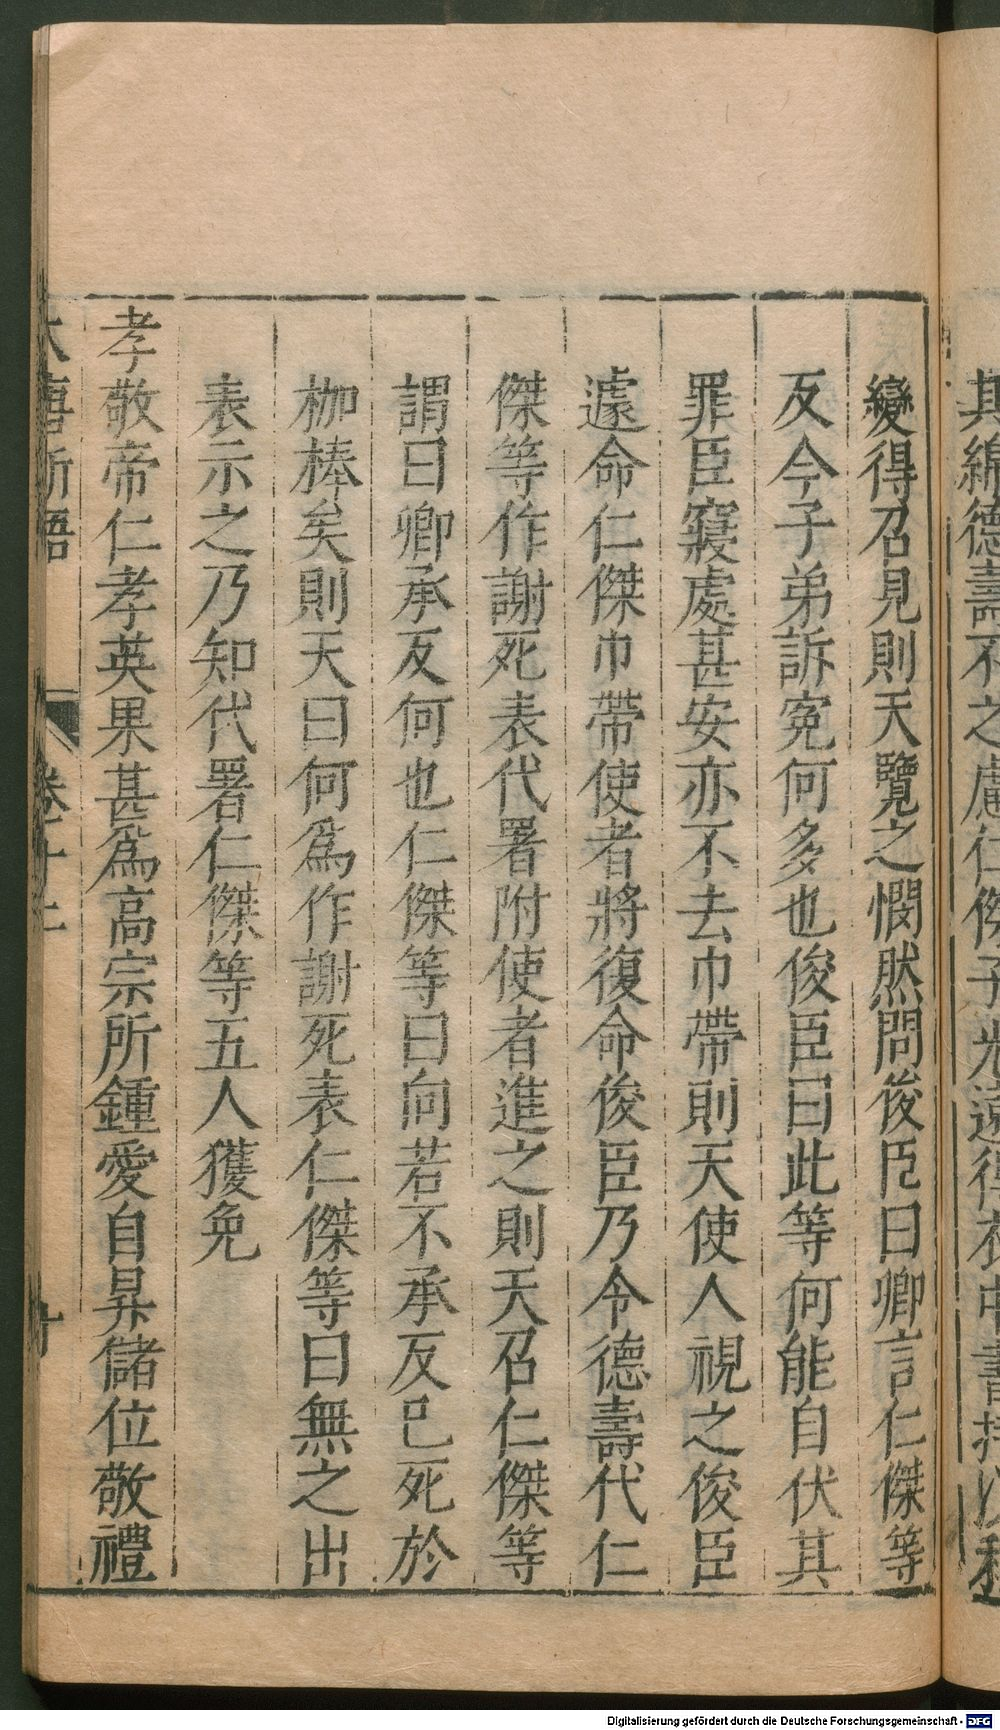 其綿德壽不之慮仁傑子光遠得衣中書持以稱
變得召見則天覽之憫然問俊臣曰卿言仁傑等
反今子弟訴冤何多也俊臣曰此等何能自伏其
罪臣寢處甚安亦不去巾帶則天使人視之俊臣
遽命仁傑巾帶使者將復命俊臣乃令德壽代仁
傑等作謝死表代署附使者進之則天召仁傑等
謂曰卿承反何也仁傑等曰向若不承反已死於
枷棒矣則天曰何爲作謝死表仁傑等曰無之出
表示之乃知代署仁傑等五人獲免
孝敬帝仁孝英果甚爲高宗所鍾愛自昇儲位敬禮
大唐新語 卷十二 十
Digitalisierung gefördert durch die Deutsche Forschungsgemeinschaft - DFG